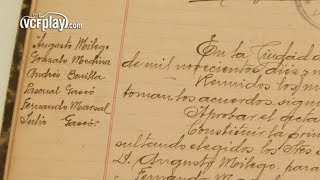 vcfplay.com
Augusto Milego
Gonzalo Medina
Andrés Bonilla
Pascual Gascó
Fernando Marsal
Julio Gascó
En la Ciudad d
de mil novecientos diez y n
Reunidos los
toman los acuerdos sigui
Aprobar el
Constituir la
sultando elegidos los Sres
D. Augusto Milego, para
Fernando